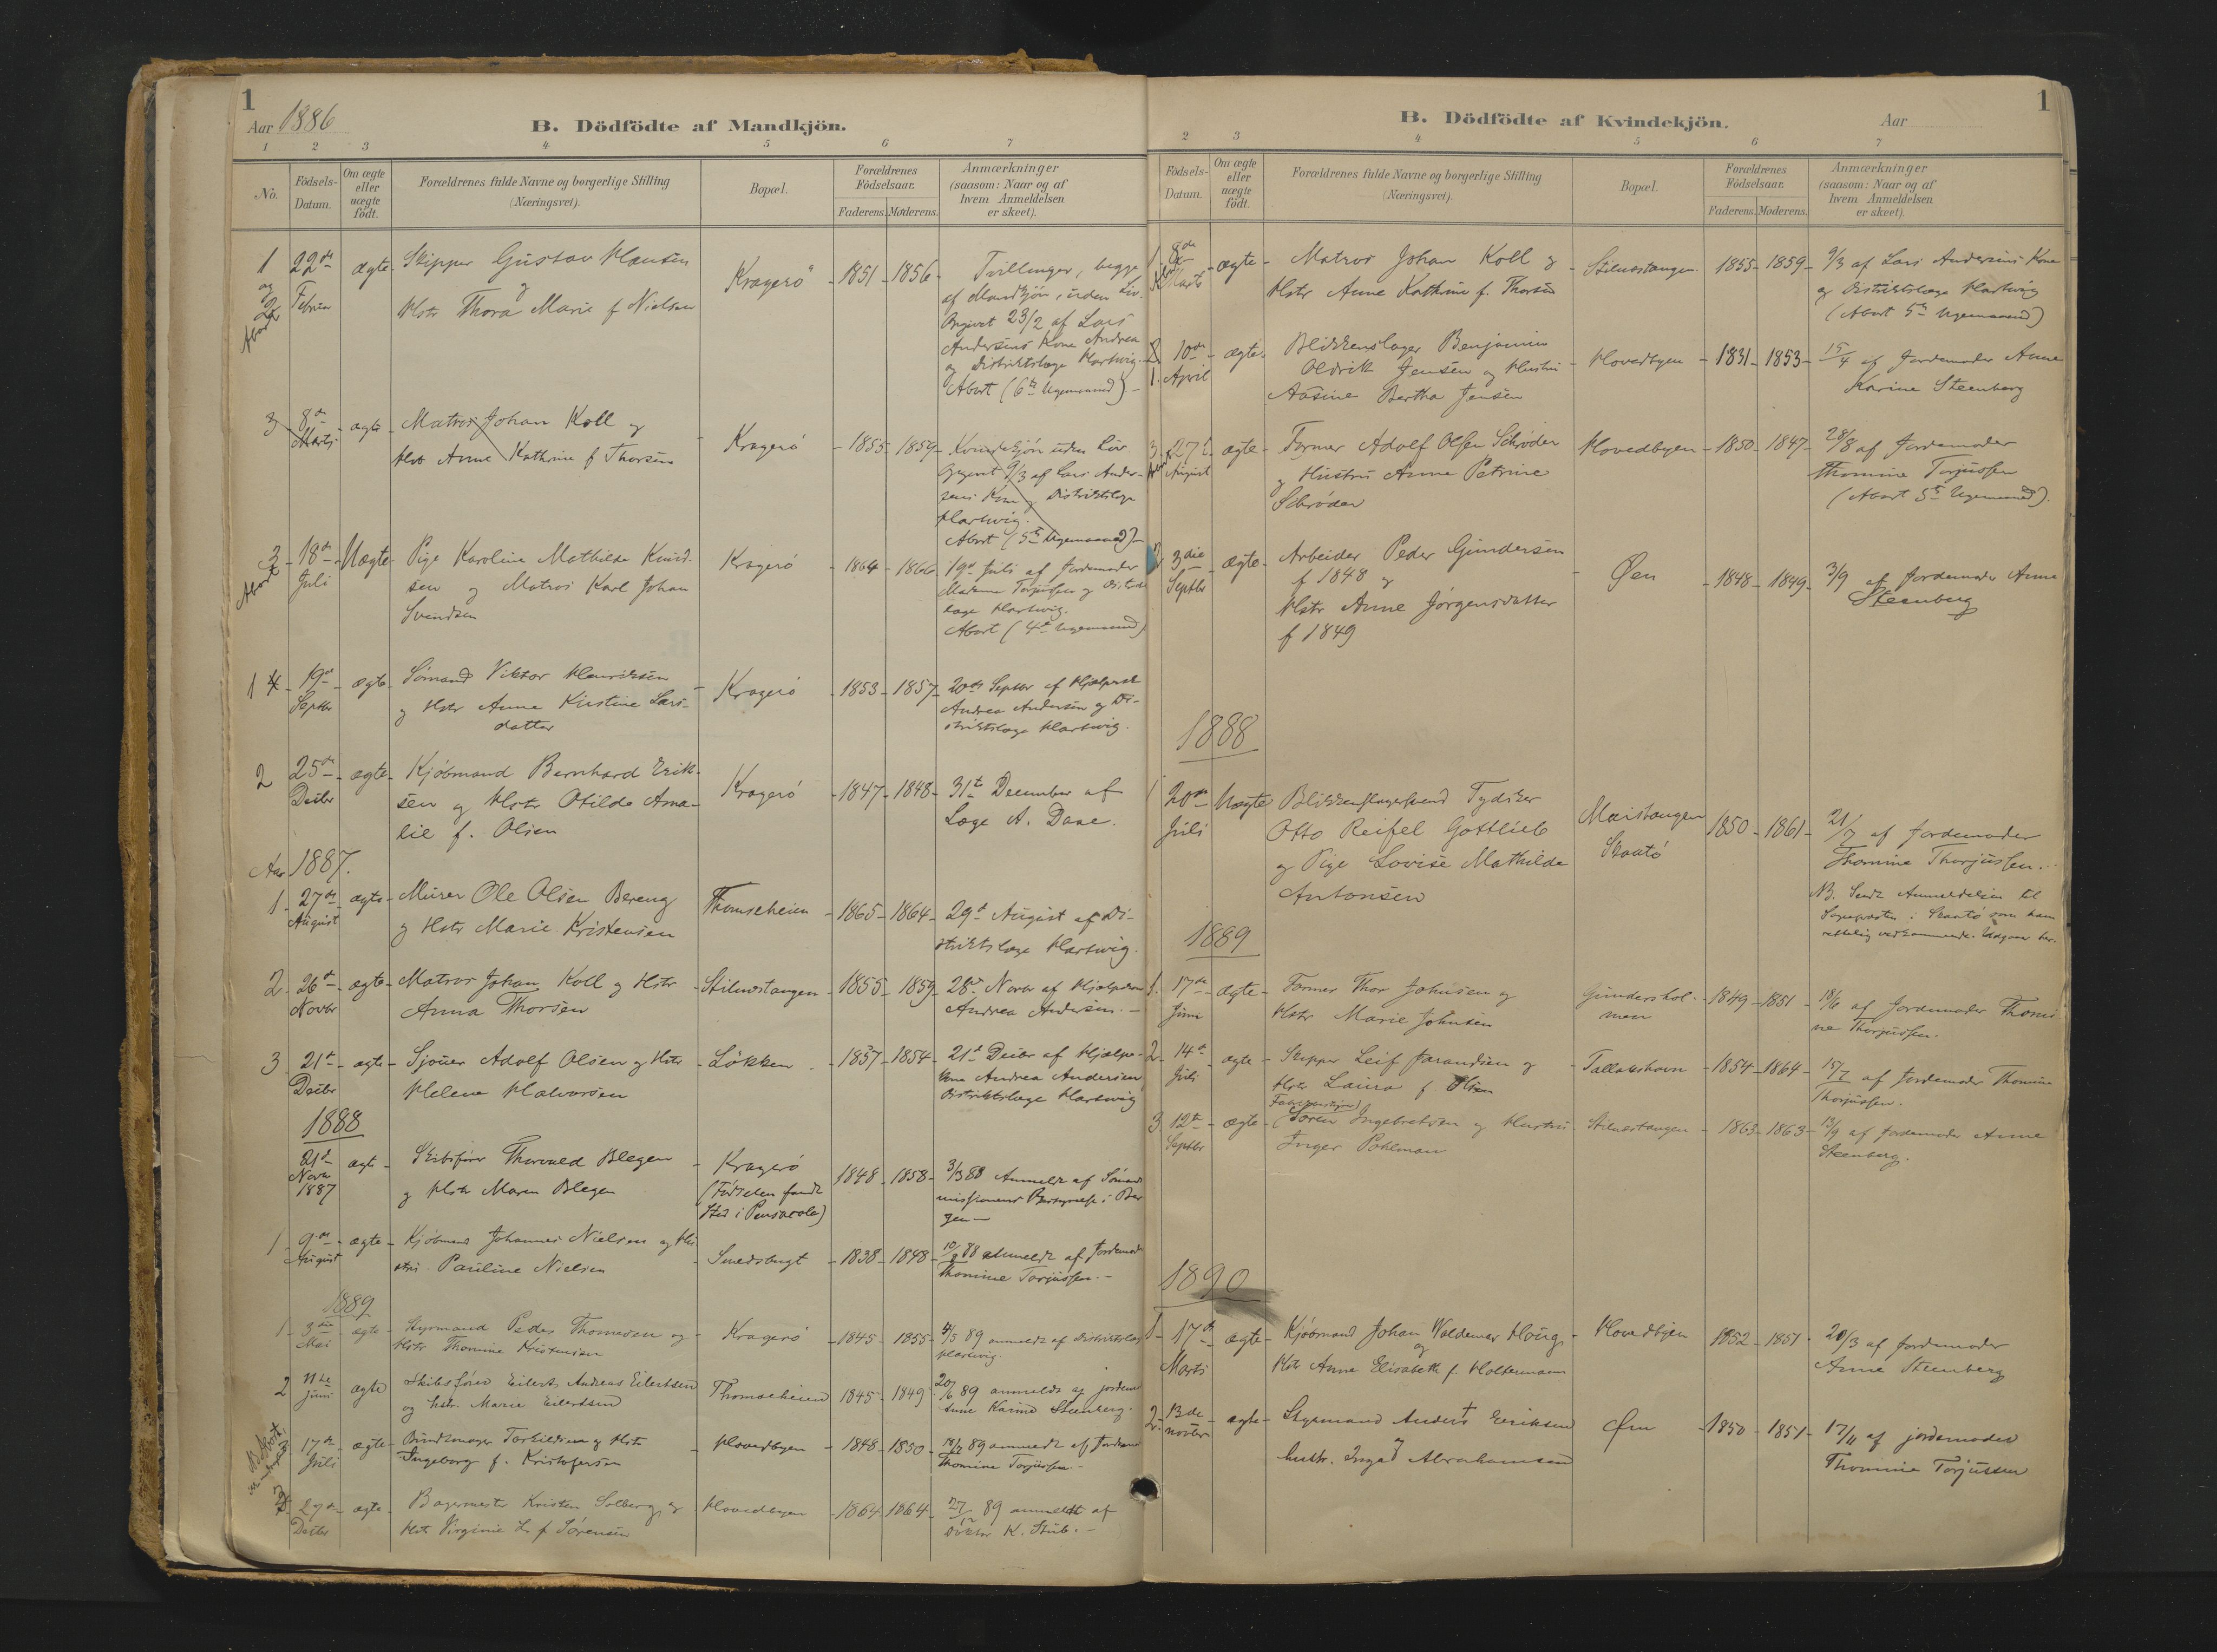 1
Aar 1886
B. Dödfödte af Mandkjön.
1 2 3 4 5 6 7
No.
Födsels-
Datum.
Om ægte
eller
uægte
födt.
Forældrenes fulde Navne og borgerlige Stilling
(Næringsvei).
Bopæl.
Forældrenes
Födselsaar.
Faderens. Moderens.
Anmærkninger
(saasom: Naar og af
hvem Anmeldelsen
er skeet).
1 22de ægte Skipper Gustav Hansen
og 2 Februar og
Abort Hstr Thora Marie f Nielsen
Kragerö 1851 1856
Tvillinger, begge
af Mandkjön, uden Liv.
Angivet 23/2 af Lars
Andersens Kone Andrea
og Distriktslæge Hartwig
Abort (6te Ugemaaned)
3 8de ægte Matros Johan Koll og
Marts Hstr Anne Kathrine f Thorsen
Kragerö 1855 1859
Kvindekjön uden Liv
9/3 af Lars Ander-
sens Kone og Distriktslæge
Hartwig.
Abort (5te Ugemaaned)
3 18de Uægte Pige Karoline Mathilde Knud-
Abort Juli sen og Matros Karl Johan
Svendsen
Kragerö 1864 1866
19de Juli af Jordemoder
Madame Torjussen og Distr.
læge Hartwig.
Abort (4de Ugemaaned)
1 4 19de ægte Sömand Viktor Henriksen
Septbr og Hstr Anne Kirstine Lars-
datter
Kragerö 1853 1857
20de Septbr af
Andrea Andersen og Di-
striktslæge Hartwig.
2 25de ægte Kjöbmand Bernhard Erik-
Decbr sen og Hstr Otilde Ama-
lie f. Olsen
Kragerö 1847 1848
31te December af
Læge A. Daae.
Aar 1887.
1 27de ægte Murer Ole Olsen Bereng
August og Hstr Marie Kristensen
Thomseheien 1865 1864
29de August af Di-
striktslæge Hartwig.
2 26de ægte Matros Johan Koll og Hstr
Novbr Anna Thorsen
Stilnestangen 1855 1859
28de Novbr af
Andrea Andersen.
3 21de ægte Sjouer Adolf Olsen og Hstr
Decbr Helene Halvorsen
Lökken 1857 1854
21de Decbr af Hjælpe-
kone Andrea Andersen
Distriktslæge Hartwig
1888
21de ægte Skibsförer Thorvald Blegen
Novbr og Hstr Maren Blegen
1887
Kragerö
(Födselen fandt
Sted i Pensacola)
1848 1858
3/3 88 Anmeldt af Sömands
missionens Bestyrelse i Ber
gen
1 9de ægte Kjöbmand Johannes Nielsen og Hu
August stru Pauline Nielsen
Smedsbugt 1838 1848
10/8 88 Anmeldt af Jordemod
Thomine Torjussen.
1889
1 3die ægte Styrmand Peder Thomesen og
Mai Hstr Thomine Kristensen
Kragerö 1845 1855
4/5 89 anmeldt af Distriktslæg
Hartwig.
2 11te ægte Skibsförer Eilert Andreas Eilertsen
Juni og hstr. Marie Eilertsen
Thomseheien 1845 1849
20/6 89 anmeldt af jordem
Anne Karine Steenberg.
17de ægte Bundtmager Torkildsen og Hstr
Juli Ingeborg f. Kristofersen
Hovedbyen 1848 1850
18/7 89 anmeldt af Jordem
Thomine Torjussen
3 27de ægte Bagermester Kristen Solberg og
Decbr Hstr Virginie L. f Sörensen
Hovedbyen 1864 1864
27/12 89 anmeldt af
Doktor K. Stub.
1
B. Dödfödte af Kvindekjön.
Aar
2 3 4 5 6 7
Födsels-
Datum.
Om ægte
eller
uægte
födt.
Forældrenes fulde Navne og borgerlige Stilling
(Næringsvei).
Bopæl.
Forældrenes
Födselsaar.
Faderens. Moderens.
Anmærkninger
(saasom: Naar og af
hvem Anmeldelsen
er skeet).
1 8de ægte Matros Johan Koll og
Marts Hstr Anne Kathrine f. Thorsen
Stilnestangen 1855 1859
9/3 af Lars Andersens Kone
og Distriktslæge Hartwig
(Abort 5te Ugemaaned)
10de ægte Blikkenslager Benjamin
1. April Oldrik Jensen og Hustru
Aasine Bertha Jensen
Hovedbyen 1831 1853
15/4 af Jordemoder Anne
Karine Steenberg
3 27de ægte Former Adolf Olsen Schröder
August og Hustru Anne Petrine
Schröder
Hovedbyen 1850 1847
28/8 af Jordemoder
Thomine Torjussen
(Abort 5te Ugemaaned).
2 3die ægte Arbeider Peder Gundersen
Septbr f 1848 og
Hstr Anne Jörgensdatter
f 1849
Öen 1848 1849
3/9 af Jordemoder Anne
Steenberg
1888
1 20de Uægte Blikkenslagersvend Tydsker
Juli Otto Reifel Gottlieb
og Pige Lovise Mathilde
Antonsen
Skaatö
1850 1861
21/7 af Jordemoder
Thomine Thorjussen.
NB. Sendt Anmeldelsen til
Sognepresten i Skaatö som ham
rettelig vedkommende. Udgaar her.
1889
1. 17de ægte Former Thor Johnsen og
Juni Hstr Marie Johnsen
Gundershol-
men
1849 1851
18/6 af Jordemoder Thomi
ne Thorjussen.
2 14de ægte Skipper Leif Jørandsen og
Juli Hstr Laura f Olsen
Tallakshavn 1854 1864
15/7 af Jordemoder Thomine
Thorjussen.
3 12te ægte Sören Ingebretsen og Hustru
Septbr Inger Pohlman
Stilnestangen 1863 1863
13/9 af Jordemoder Anne
Steenberg.
1890
1 17de ægte Kjöbmand Johan Waldemar Houg
og
Marts Hstr Anne Elisabeth f. Holtermann
Hovedbyen 1852 1851
20/3 af Jordemoder
Anne Steenberg
2 13de ægte Styrmand Anders Eriksen
novbr og
hustr. Inga Abrahamsen
Øen 1850 1851
17/11 af jordemoder
Thomine Torjussen